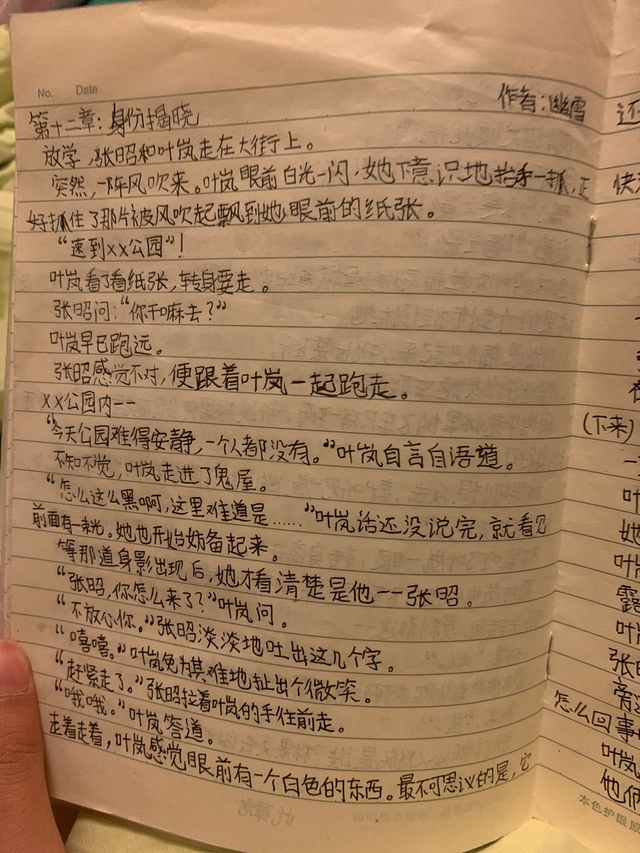 No. Date
作者:幽雪
第十二章:身份揭晓
放学,张昭和叶岚走在大街上。
突然,一阵风吹来。叶岚眼前白光一闪,她下意识地抬手一抓,正
好抓住了那片被风吹起飘到她眼前的纸张。
“速到xx公园”!
叶岚看了看纸张,转身要走。
张昭问:“你干嘛去?”
叶岚早已跑远。
张昭感觉不对,便跟着叶岚一起跑走。
xx公园内--
“今天公园难得安静,一个人都没有。”叶岚自言自语道。
不知不觉,叶岚走进了鬼屋。
“怎么这么黑啊,这里难道是……”叶岚话还没说完,就看见
前面有一束光。她也开始妨备起来。
等那道身影出现后,她才看清楚是他——张昭。
“张昭,你怎么来了?”叶岚问。
“不放心你。”张昭淡淡地吐出这几个字。
“嘻嘻。”叶岚免为其难地扯出个微笑。
“赶紧走了。”张昭拉着叶岚的手往前走。
“哦哦。”叶岚答道。
走着走着,叶岚感觉眼前有一个白色的东西。最不可思议的是,它
还
快
(下来)
一
叶
她
叶
露
叶
张
旁
怎么回事
叶岚
他们
本色护眼